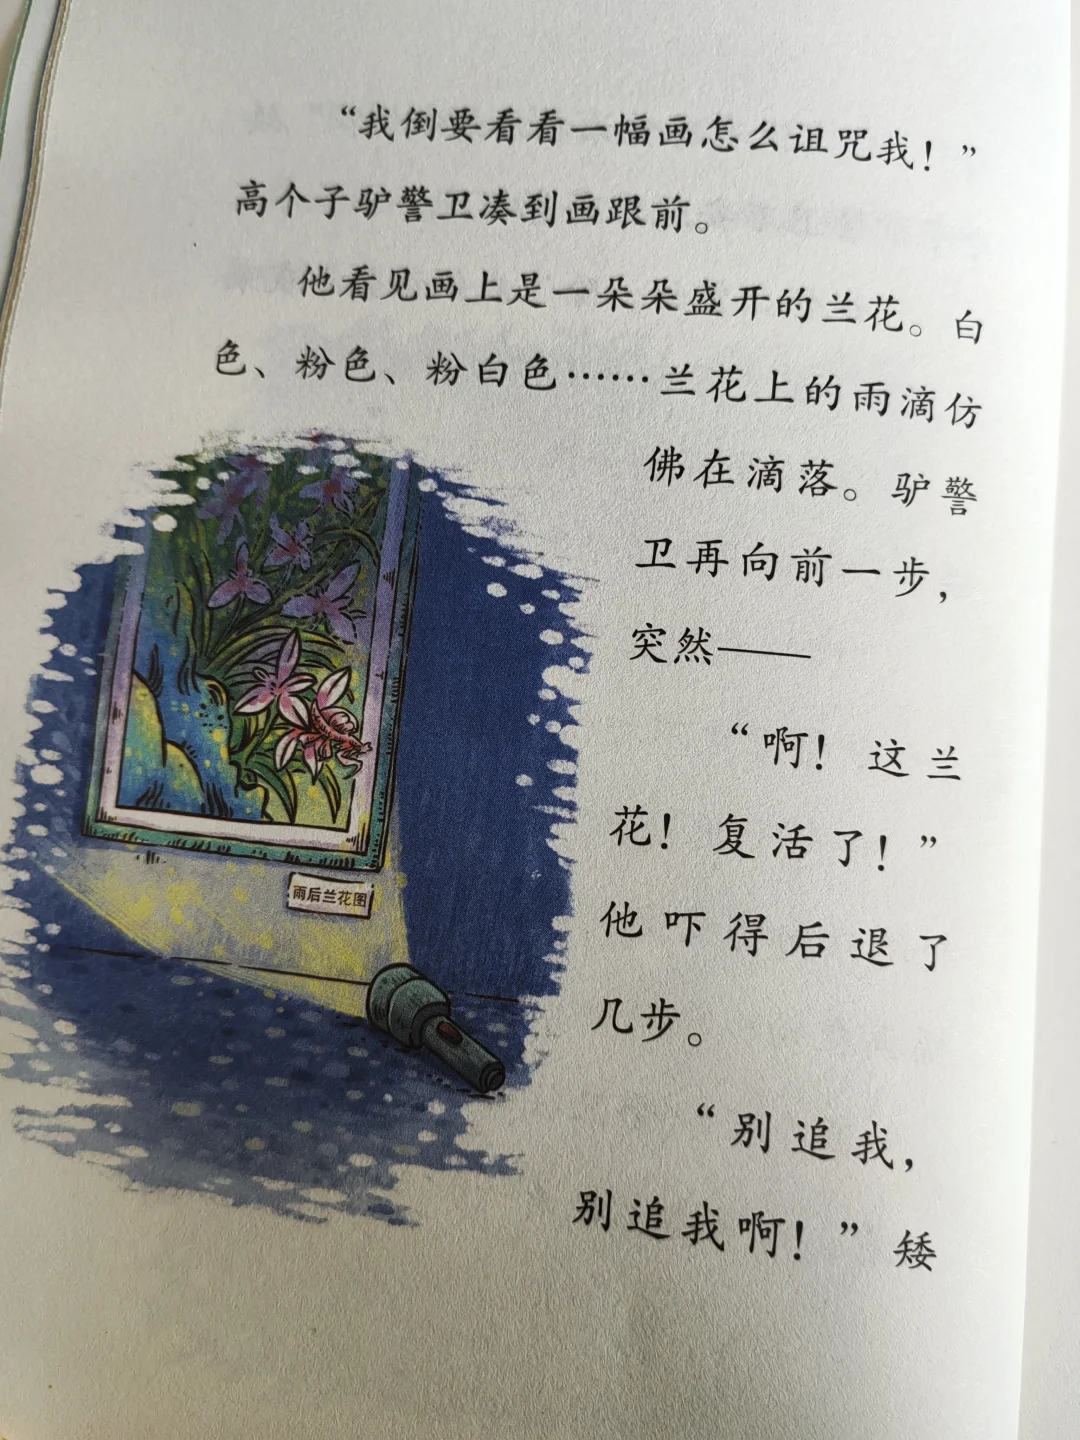 “我倒要看看一幅画怎么诅咒我！”
高个子驴警卫凑到画跟前。
他看见画上是一朵朵盛开的兰花。白
色、粉色、粉白色……兰花上的雨滴仿
佛在滴落。驴警
卫再向前一步，
突然——
“啊！这兰
花！复活了！”
他吓得后退了
几步。
“别追我，
别追我啊！”矮
雨后兰花图